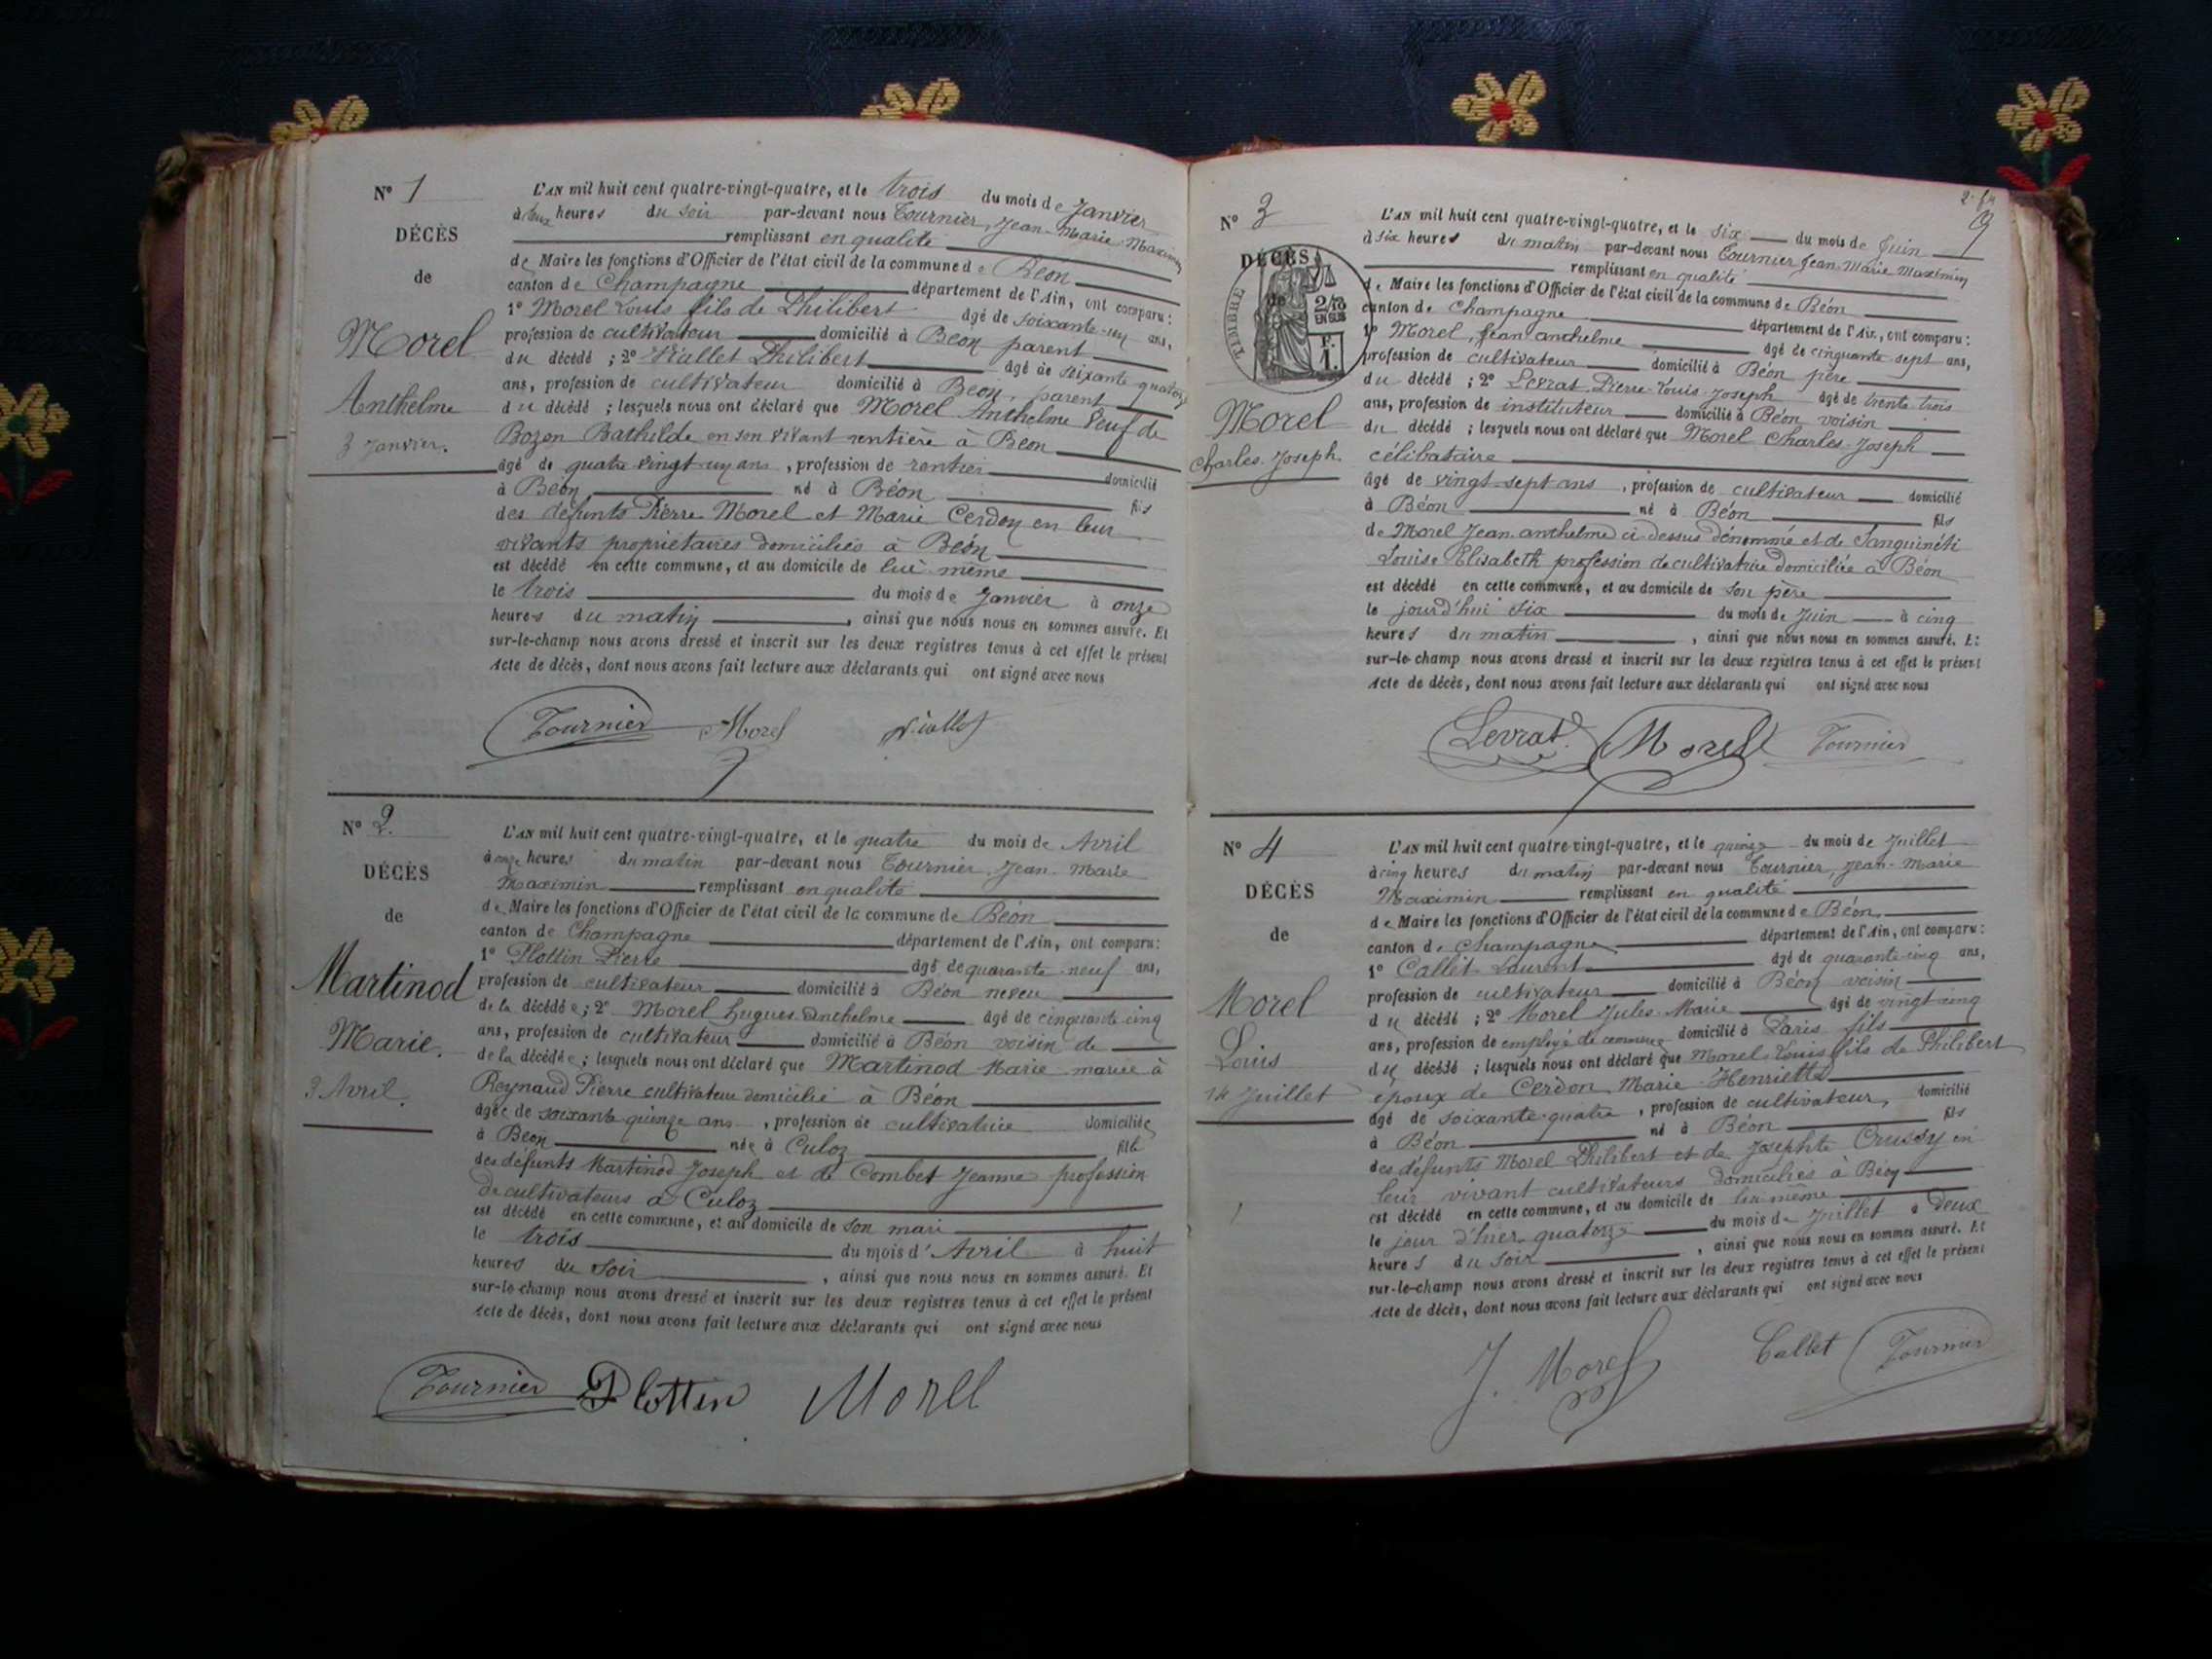 N° 1
DÉCÈS
de
Morel
Anthelme
3 Janvier.
L'AN mil huit cent quatre-vingt-quatre, et le trois du mois de Janvier
à deux heures du soir par-devant nous Tournier, Jean-Marie-Maximin
remplissant en qualité
de Maire les fonctions d'Officier de l'état civil de la commune de Béon
canton de Champagne département de l'Ain, ont comparu:
1° Morel Louis fils de Philibert âgé de soixante-un ans,
profession de cultivateur domicilié à Béon parent
du décédé ; 2° Viallet Philibert âgé de soixante quatorze
ans, profession de cultivateur domicilié à Béon, parent
du décédé ; lesquels nous ont déclaré que Morel Anthelme Veuf de
Bozon Bathilde en son vivant rentière à Béon
âgé de quatre vingt un ans, profession de rentier domicilié
à Béon né à Béon fils
des défunts Pierre Morel et Marie Cerdon en leur
vivants propriétaires domiciliés à Béon
est décédé en cette commune, et au domicile de lui même
le trois du mois de Janvier à onze
heures du matin, ainsi que nous nous en sommes assuré. Et
sur-le-champ nous avons dressé et inscrit sur les deux registres tenus à cet effet le présent
Acte de décès, dont nous avons fait lecture aux déclarants qui ont signé avec nous
Tournier Morel Viallet
N° 2.
DÉCÈS
de
Martinod
Marie.
3 Avril.
L'AN mil huit cent quatre-vingt-quatre, et le quatre du mois de Avril
à onze heures du matin par-devant nous Tournier, Jean-Marie
Maximin remplissant en qualité
de Maire les fonctions d'Officier de l'état civil de la commune de Béon
canton de Champagne département de l'Ain, ont comparu:
1° Plottin Pierre âgé de quarante-neuf ans,
profession de cultivateur domicilié à Béon neveu
de la décédée ; 2° Morel Hugues Anthelme âgé de cinquante cinq
ans, profession de cultivateur domicilié à Béon voisin de
de la décédée ; lesquels nous ont déclaré que Martinod Marie mariée à
Reynaud Pierre cultivateur domicilié à Béon
âgée de soixante quinze ans, profession de cultivatrice domiciliée
à Béon née à Culoz fille
des défunts Martinod Joseph et de Combet Jeanne profession
de cultivateurs à Culoz
est décédé en cette commune, et au domicile de son mari
le trois du mois d'Avril à huit
heures du soir, ainsi que nous nous en sommes assuré. Et
sur-le-champ nous avons dressé et inscrit sur les deux registres tenus à cet effet le présent
Acte de décès, dont nous avons fait lecture aux déclarants qui ont signé avec nous
Tournier Plottin Morel
9
N° 3
DÉCÈS
de
TIMBRE
2/10
EN SUS
F.
1.
Morel
Charles-Joseph.
L'AN mil huit cent quatre-vingt-quatre, et le six du mois de Juin
à six heures du matin par-devant nous Tournier Jean-Marie Maximin
remplissant en qualité
de Maire les fonctions d'Officier de l'état civil de la commune de Béon
canton de Champagne département de l'Ain, ont comparu:
1° Morel, Jean anthelme âgé de cinquante-sept ans,
profession de cultivateur domicilié à Béon père
du décédé ; 2° Levrat Pierre-Louis-Joseph âgé de trente-trois
ans, profession de instituteur domicilié à Béon voisin
du décédé ; lesquels nous ont déclaré que Morel Charles-Joseph
célibataire
âgé de vingt-sept ans, profession de cultivateur domicilié
à Béon né à Béon fils
de Morel Jean anthelme ci dessus dénommé et de Sanguinéti
Louise Elisabeth profession de cultivatrice domiciliée à Béon
est décédé en cette commune, et au domicile de son père
le jourd'hui six du mois de Juin à cinq
heures du matin, ainsi que nous nous en sommes assuré. Et
sur-le-champ nous avons dressé et inscrit sur les deux registres tenus à cet effet le présent
Acte de décès, dont nous avons fait lecture aux déclarants qui ont signé avec nous
Levrat Morel Tournier
N° 4
DÉCÈS
de
Morel
Louis
14 Juillet
L'AN mil huit cent quatre-vingt-quatre, et le quinze du mois de Juillet
à cinq heures du matin par-devant nous Tournier, Jean-Marie
Maximin remplissant en qualité
de Maire les fonctions d'Officier de l'état civil de la commune de Béon,
canton de Champagne département de l'Ain, ont comparu:
1° Callet Laurent âgé de quarante-cinq ans,
profession de cultivateur domicilié à Béon voisin
du décédé ; 2° Morel Jules-Marie âgé de vingt-cinq
ans, profession de employé de commerce domicilié à Paris fils
du décédé ; lesquels nous ont déclaré que Morel Louis fils de Philibert
époux de Cerdon Marie-Henriette
âgé de soixante-quatre, profession de cultivateur, domicilié
à Béon né à Béon fils
des défunts Morel Philibert et de Josephte Crussy en
leur vivant cultivateurs domiciliés à Béon
est décédé en cette commune, et au domicile de lui-même
le jour d'hier quatorze du mois de Juillet à deux
heures du soir, ainsi que nous nous en sommes assuré. Et
sur-le-champ nous avons dressé et inscrit sur les deux registres tenus à cet effet le présent
Acte de décès, dont nous avons fait lecture aux déclarants qui ont signé avec nous
J. Morel Callet Tournier